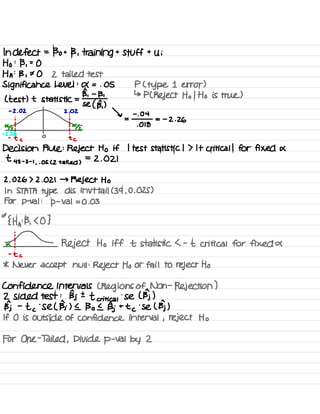 ln defect = β₀ + β₁ training + stuff + uᵢ
H₀: β₁ = 0
Hᴀ: β₁ ≠ 0 2 tailed test
Significance Level: α = .05 P(type 1 error)
↳ P(Reject H₀ | H₀ is true)
(test) t statistic = β̂₁ - β₁ / se(β̂₁)
= -.04 / .018 = -2.26
-2.02 2.02
α/2 α/2
-2.26
-tc 0 tc
Decision Rule: Reject H₀ if |test statistic| > |t critical| for fixed α
t 43-3-1, .05 (2 tailed) = 2.021
2.026 > 2.021 → Reject H₀
In STATA type dis invttail(39, 0.025)
For p-val: p-val = 0.03
*{Hᴀ: β₁ < 0}
α Reject H₀ iff t statistic < -t critical for fixed α
-tc
* Never accept null: Reject H₀ or fail to reject H₀
Confidence Intervals (Regions of Non-Rejection)
2 sided test: β̂ⱼ ± t critical · se(β̂ⱼ)
β̂ⱼ - tc · se(β̂ⱼ) ≤ β₀ ≤ β̂ⱼ + tc · se(β̂ⱼ)
If 0 is outside of confidence interval, reject H₀
For One-Tailed, Divide p-val by 2